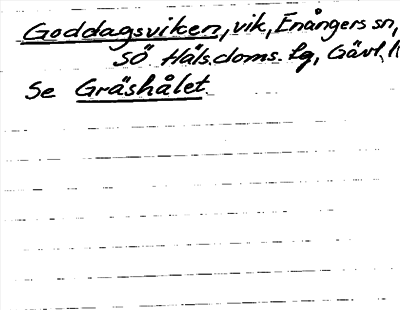 Goddagsviken, vik, Enångers sn,
SÖ Häls.doms. lg, Gävl.
Se Gräshålet